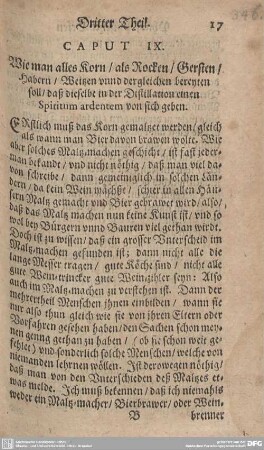 Dritter Theil. 17
CAPUT IX.
Wie man alles Korn / als Rocken / Gersten /
Habern / Weitzen vnnd dergleichen bereyten
soll / daß dieselbe in der Distillation einen
Spiritum ardentem von sich geben.
ERstlich muß das Korn gemaltzet werden / gleich
als wann man Bier davon brawen wolte. Wie
aber solches Maltz-machen geschicht / ist fast jeder-
man bekandt / vnd nicht nöthig / daß man viel da-
von schreibe / dann gemeinlich in solchen Län-
dern / da kein Wein wächßt / schier in allen Häu-
sern Maltz gemacht vnd Bier gebrawet wird / also /
daß das Maltz machen nun keine Kunst ist / vnd so
wol bey Bürgern vnnd Bauren viel gethan wirdt.
Doch ist zu wissen / daß ein grosser Vnterscheid im
Maltz-machen gefunden ist; dann nicht alle die
lange Messer tragen / gute Köche sind / nicht alle
gute Weintrincker gute Weinzihler seyn: Also
auch im Maltz-machen zu verstehen ist. Dann der
mehrertheil Menschen jhnen einbilden / wann sie
nur also thun gleich wie sie von jhren Eltern oder
Vorfahren gesehen haben / den Sachen schon mey-
nen genug gethan zu haben / (ob sie schon weit ge-
fehlet) vnd sonderlich solche Menschen / welche von
niemanden lehrnen wöllen. Ist derowegen nöthig /
daß man von den Vnterschieden deß Maltzes et-
was melde. Ich muß bekennen / daß ich niemahls
weder ein Maltz-macher / Bierbrawer / oder Wein-
B brenner